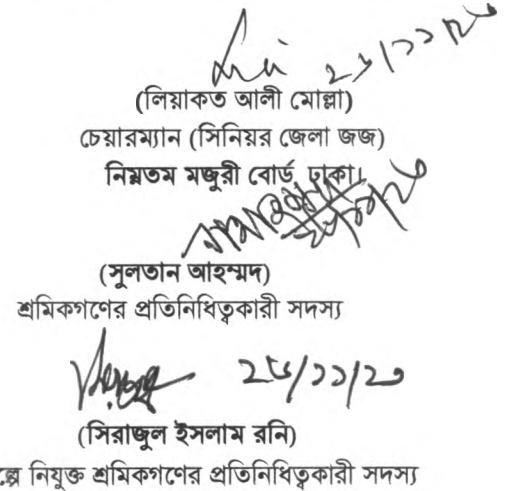 (লিয়াকত আলী মোল্লা)
চেয়ারম্যান (সিনিয়র জেলা জজ)
নিম্নতম মজুরী বোর্ড, ঢাকা।
(সুলতান আহম্মদ)
শ্রমিকগণের প্রতিনিধিত্বকারী সদস্য
(সিরাজুল ইসলাম রনি)
নিযুক্ত শ্রমিকগণের প্রতিনিধিত্বকারী সদস্য